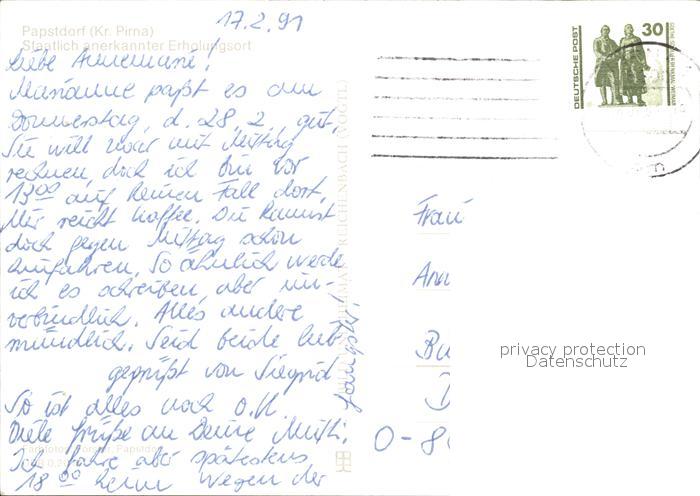 17.2.91
Papstdorf (Kr. Pirna)
Staatlich anerkannter Erholungsort
Liebe Annemarie!
Marianne paßt es am
Donnerstag, d. 28.2. gut,
Sie will zwar mit Mittag
rechnen, doch ich bin vor
13⁰⁰ auf keinen Fall dort.
Mir reicht Kaffee. Du kannst
doch gegen Mittag schon
hinfahren. So ähnlich werde
ich es schreiben, aber un-
verbindlich. Alles andere
mündlich. Seid beide lieb
gegrüßt von Siegrid
So ist alles noch o.k.
Viele Grüße an Deine Mutti.
Ich fahre aber spätestens
18⁰⁰ heim wegen der
REICHENBACH (VOGTL)
DEUTSCHE POST
30
Frau
Ann
Bu
D
O-8
privacy protection
Datenschutz